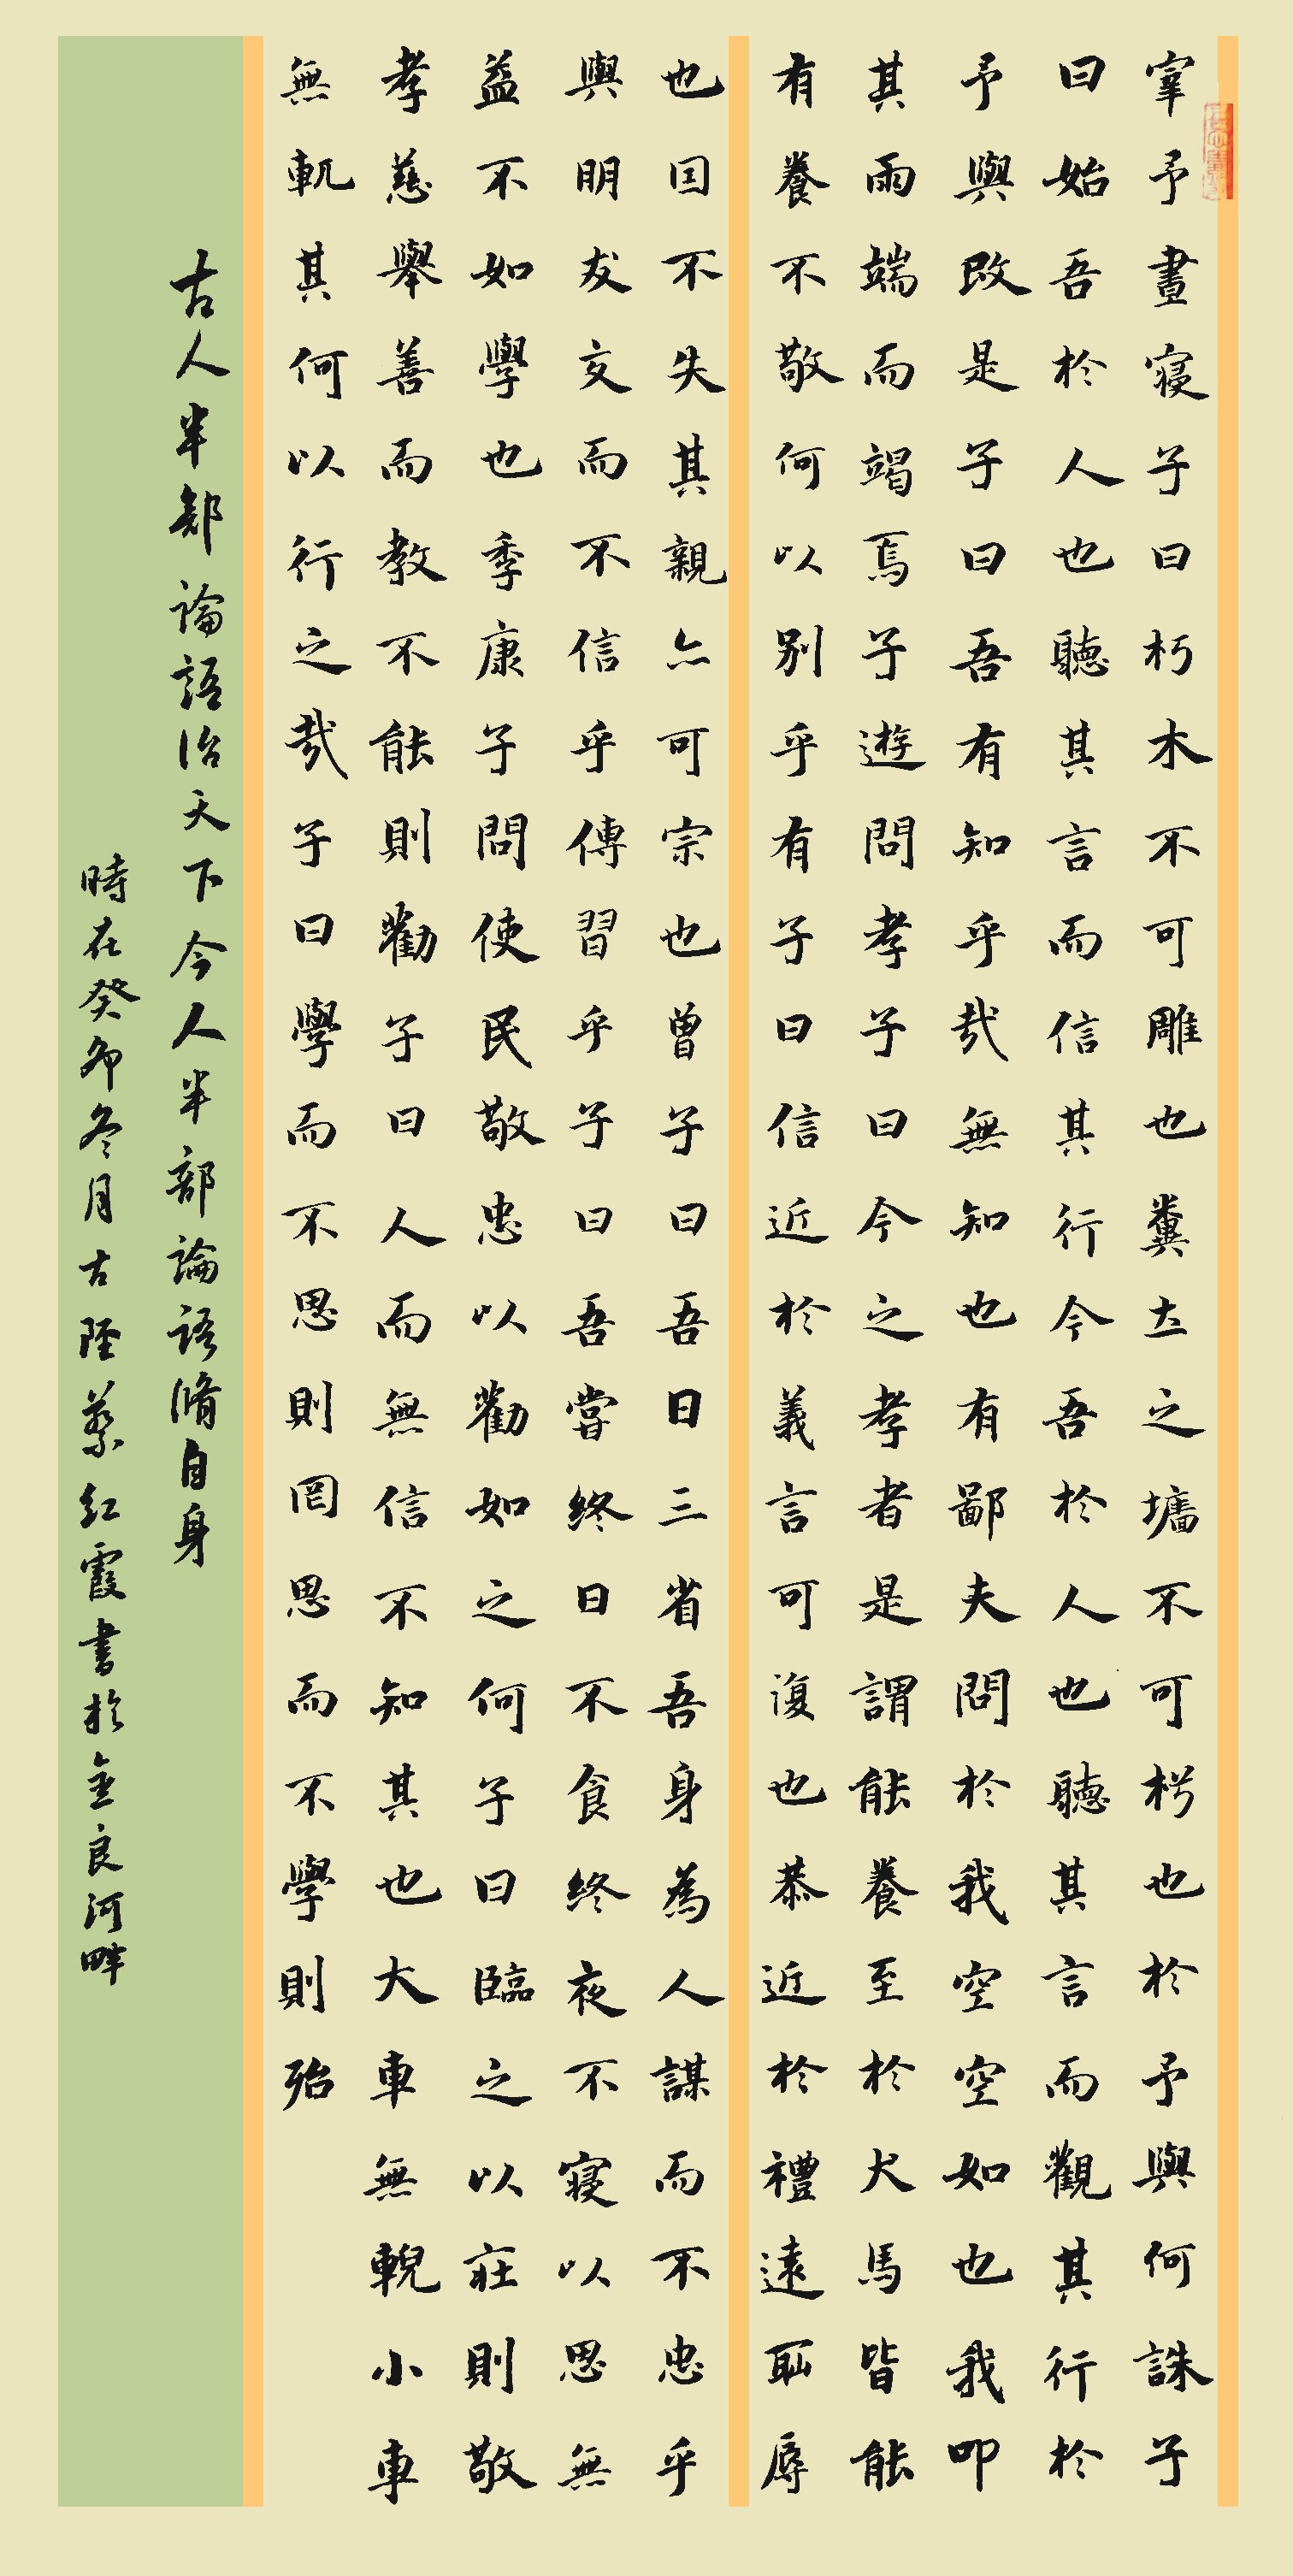 宰予晝寝子曰朽木不可雕也糞土之墻不可杇也於予與何誅子
曰始吾於人也聽其言而信其行今吾於人也聽其言而觀其行於
予與改是子曰吾有知乎哉無知也有鄙夫問於我空空如也我叩
其兩端而竭焉子遊問孝子曰今之孝者是謂能養至於犬馬皆能
有養不敬何以别乎有子曰信近於義言可復也恭近於禮遠恥辱
也因不失其親亦可宗也曾子曰吾日三省吾身為人謀而不忠乎
與朋友交而不信乎傳習乎子曰吾嘗終日不食終夜不寝以思無
益不如學也季康子問使民敬忠以勸如之何子曰臨之以莊則敬
孝慈舉善而教不能則勸子曰人而無信不知其也大車無輗小車
無軏其何以行之哉子曰學而不思則罔思而不學則殆
古人半部論語治天下今人半部論語脩自身
時在癸卯冬月古陘蔡红霞書於金良河畔